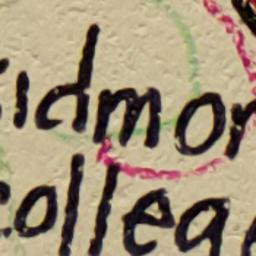 idmor
colleg